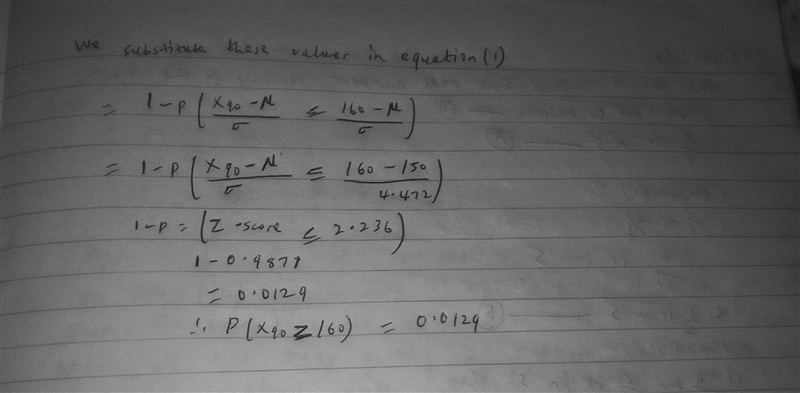 We substitute these values in equation (1)
= 1-P (X90 - μ / σ ≤ 160 - μ / σ)
= 1-P (X90 - μ / σ ≤ 160 - 150 / 4.472)
1-P = (Z-score ≤ 2.236)
1 - 0.9871
= 0.0129
∴ P(X90 ≥ 160) = 0.0129